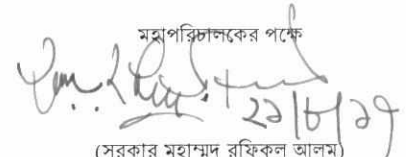 মহাপরিচালকের পক্ষে
২১/৮/১৭
(সরকার মহাম্মদ রফিকুল আলম)